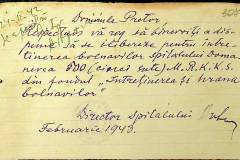 Domnule Pretor,
Respectuos vă rog să binevoiți a dis-
pune să se elibereze pentru între-
ținerea bolnavilor spitalului Doma-
nevca 500 (cinci sute) M.R.K.K.S.
din fondul "Întreținerea și hrana
bolnavilor"
Director Spitalului
Februarie 1943.